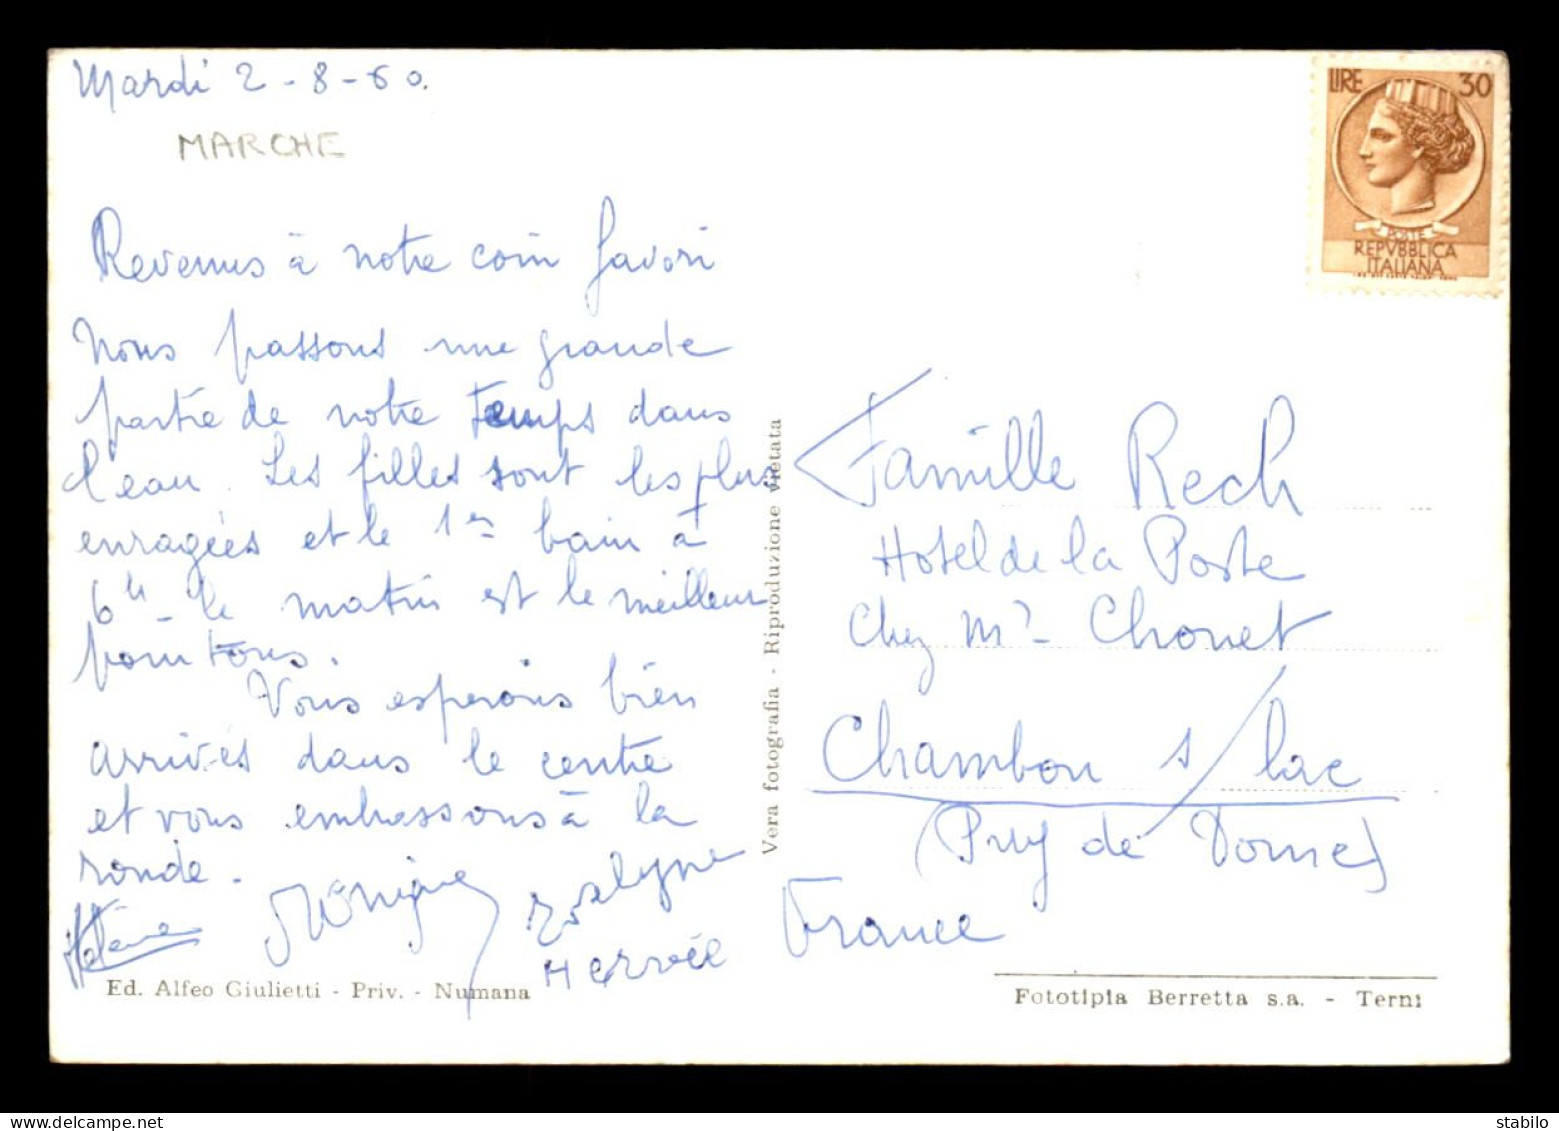 Mardi 2-8-60.
MARCHE
Revenus à notre coin favori
Nous passons une grande
partie de notre temps dans
l'eau. Les filles sont les plus
enragées et le 1er bain à
6h le matin est le meilleur
pour tous.
Vous esperons bien
arrivés dans le centre
et vous embrassons à la
ronde.
Hélène Monique Jocelyne
Hervée
Ed. Alfeo Giulietti - Priv. - Numana
Vera fotografia - Riproduzione vietata
LIRE 30
POSTE
REPVBBLICA
ITALIANA
Famille Rech
Hotel de la Poste
Chez Mr Chonet
Chambon s/lac
(Puy de Dome)
France
Fototipia Berretta s.a. - Terni
stabilo